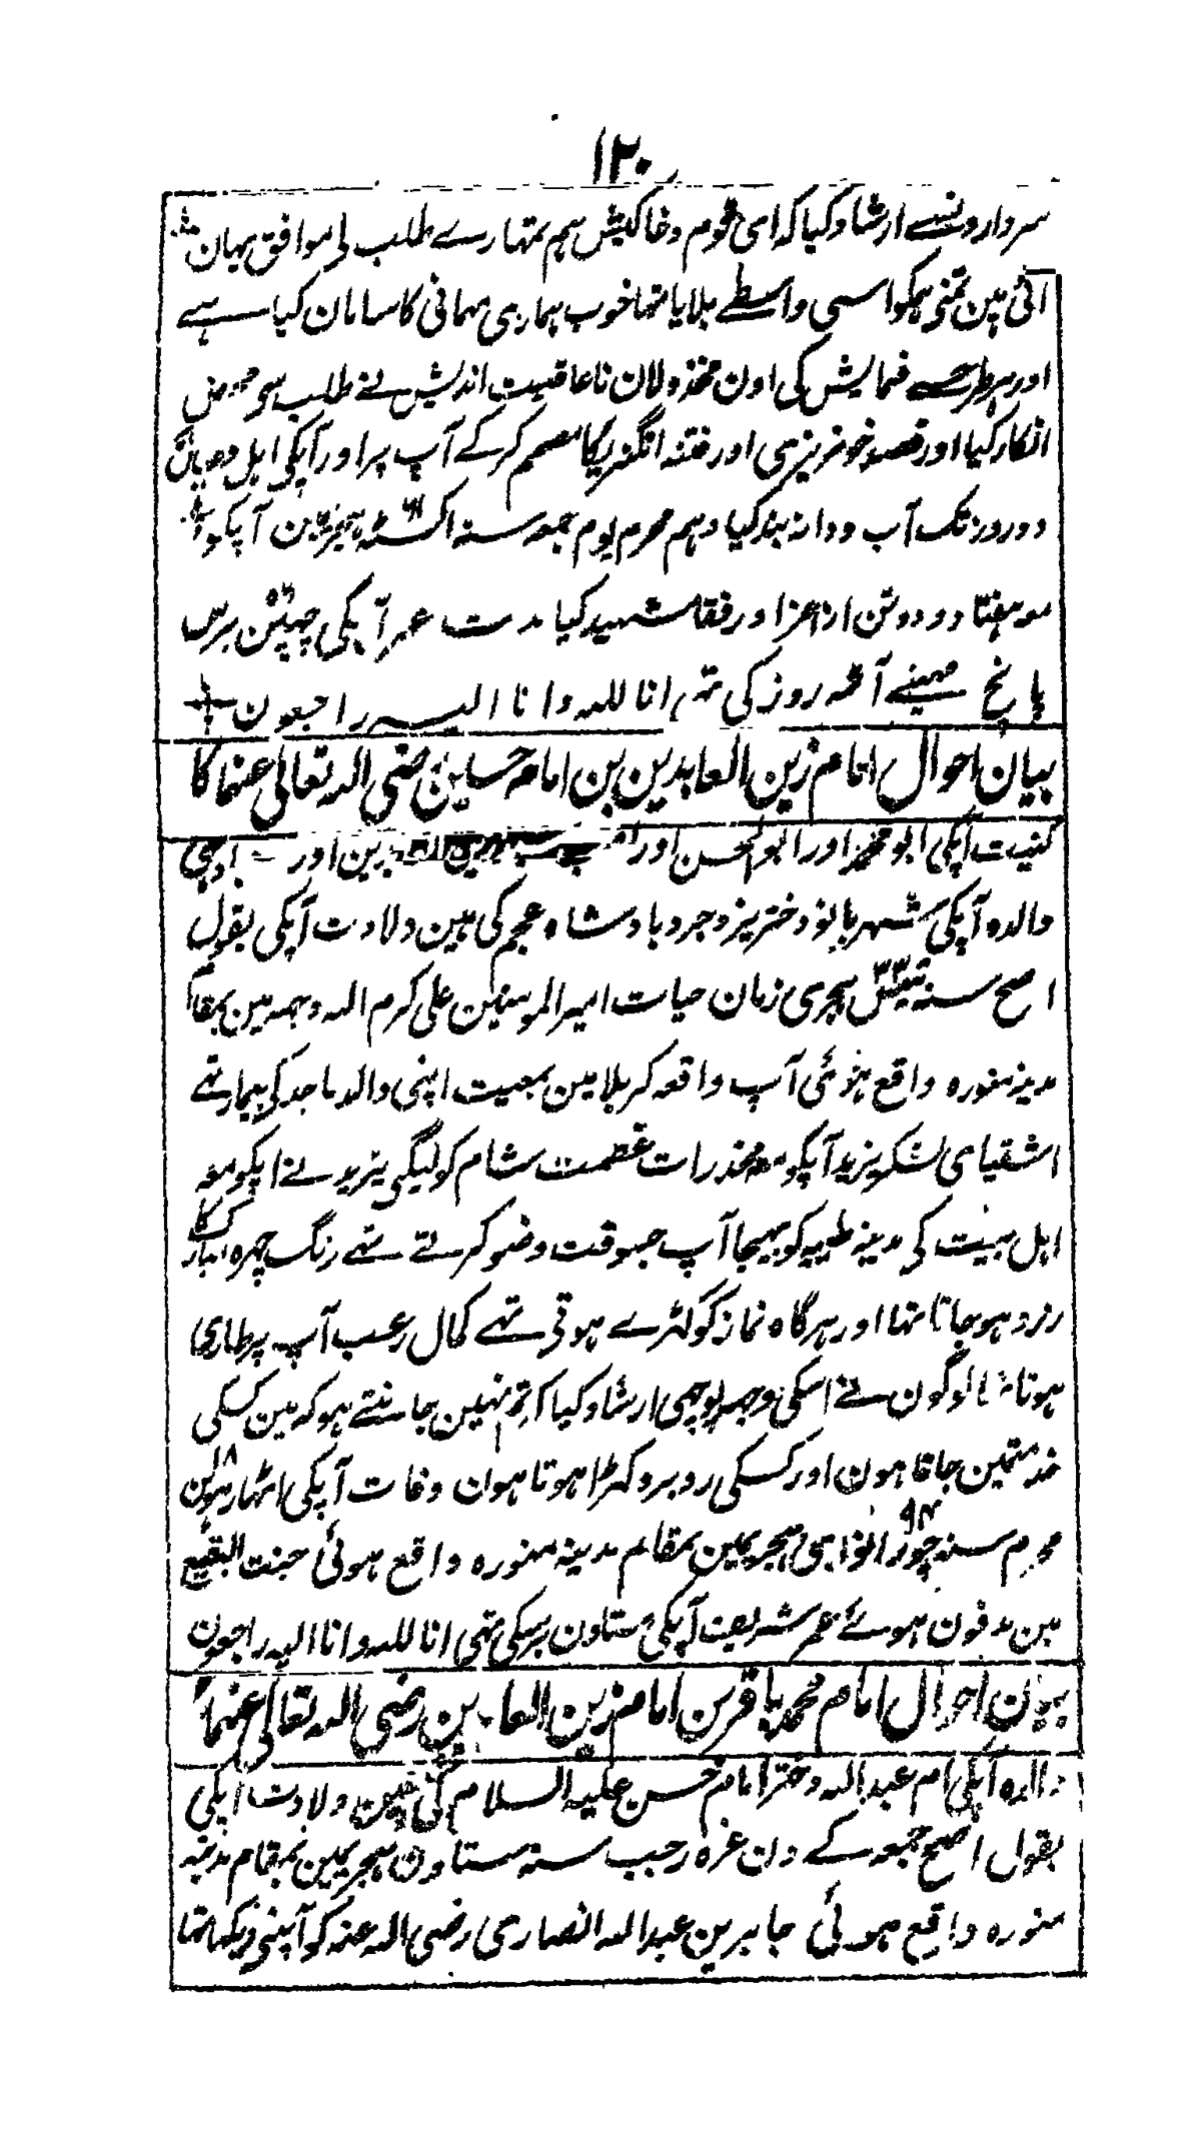 ۱۲۰
سردارونسے ارشاد کیا کہ ای قوم دغاکیش ہم تمہارے طلب کی موافق یہان
آئی ہین تمنی ہمکو اسی واسطے بلایا تہا خوب ہماری مہمانی کا سامان کیا ہے
اور ہرطرحسے فہمایش کی اون مخذولان ناعاقبت اندیش نے طلب سی محض
انکار کیا اور قصد خونریزی اور فتنہ انگیزیکا مصمم کرکے آپ پر اور آپکی اہل وعیال
دو روز تک آب ودانہ بند کیا دہم محرم یوم جمعہ سنہ اکسٹہ ہجریمین آپکو
مع ہفتاد و دو تن از اعزا و رفقا شہید کیا مدت عمر آپکی چہپن برس
پانچ مہینے آٹہ روز کی تہی انا للہ وانا الیہ راجعون
بیان احوال امام زین العابدین بن امام حسین رضی اللہ تعالی عنہما کا
کنیت آپکی ابو محمد اور ابو الحسن اور اور
والدہ آپکی شہربانو دختر یزدجرد بادشاہ عجم کی ہین ولادت آپکی بقول
اصح سنہ تینتیس ۳۳ ہجری زمان حیات امیر المومنین علی کرم اللہ وجہہ مین بمقام
مدینہ منورہ واقع ہوئی آپ واقعہ کربلا مین بمعیت اپنی والد ماجد کی بیمار تہے
اشقیای لشکر یزید آپکو معہ مخدرات عصمت شام کو لیگئی یزید نے آپکو معہ
اہل بیت کی مدینہ طیبہ کو بہیجا آپ جسوقت وضو کرتے تہے رنگ چہرہ مبارک کا
زرد ہو جاتا تہا اور ہرگاہ نماز کو کہڑے ہوتی تہے کمال رعب آپ پر طاری
ہوتا تہا لوگون نے اسکی وجہ پوچہی ارشاد کیا کہ تم نہین جانتے ہو کہ مین کسکی
خدمتمین جاتا ہون اور کسکی روبرو کہڑا ہوتا ہون وفات آپکی اٹہارہوین ۱۸
محرم سنہ چورانوی ۹۴ ہجریمین بمقام مدینہ منورہ واقع ہوئی جنت البقیع
مین مدفون ہوئے عمر شریف آپکی ستاون برسکی تہی انا للہ وانا الیہ راجعون
بیان احوال امام محمد باقر بن امام زین العابدین رضی اللہ تعالی عنہما
والدہ آپکی ام عبد اللہ دختر امام حسن علیہ السلام کی ہین ولادت آپکی
بقول اصح جمعہ کے دن غرہ رجب سنہ ستاون ہجریمین بمقام مدینہ
منورہ واقع ہوئی جابر بن عبد اللہ انصاری رضی اللہ عنہ کو آپنی دیکہا تہا